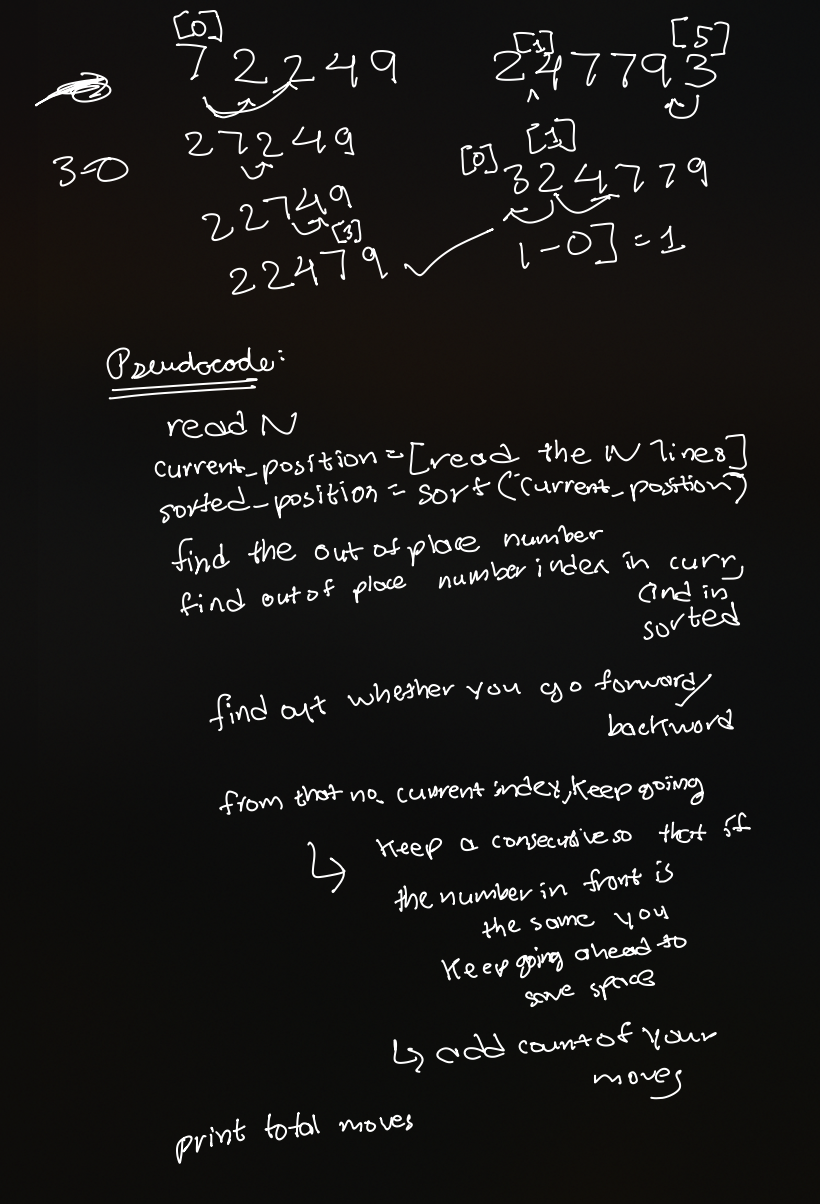 [0]
7 2 2 4 9
2 7 2 4 9
3-0
2 2 7 4 9
[3]
2 2 4 7 9
[1] [5]
2 4 7 7 9 3
[0] [1]
3 2 4 7 7 9
1-0] = 1
Pseudocode:
read N
current_position = [read the N lines]
sorted_position = sort (current_position)
find the out of place number
find out of place number index in curr,
and in
sorted
find out whether you go forward/
backword
from that no. current index, keep going
↳ Keep a consecutive so that if
the number in front is
the same you
Keep going ahead to
save space
↳ add count of your
moves
print total moves